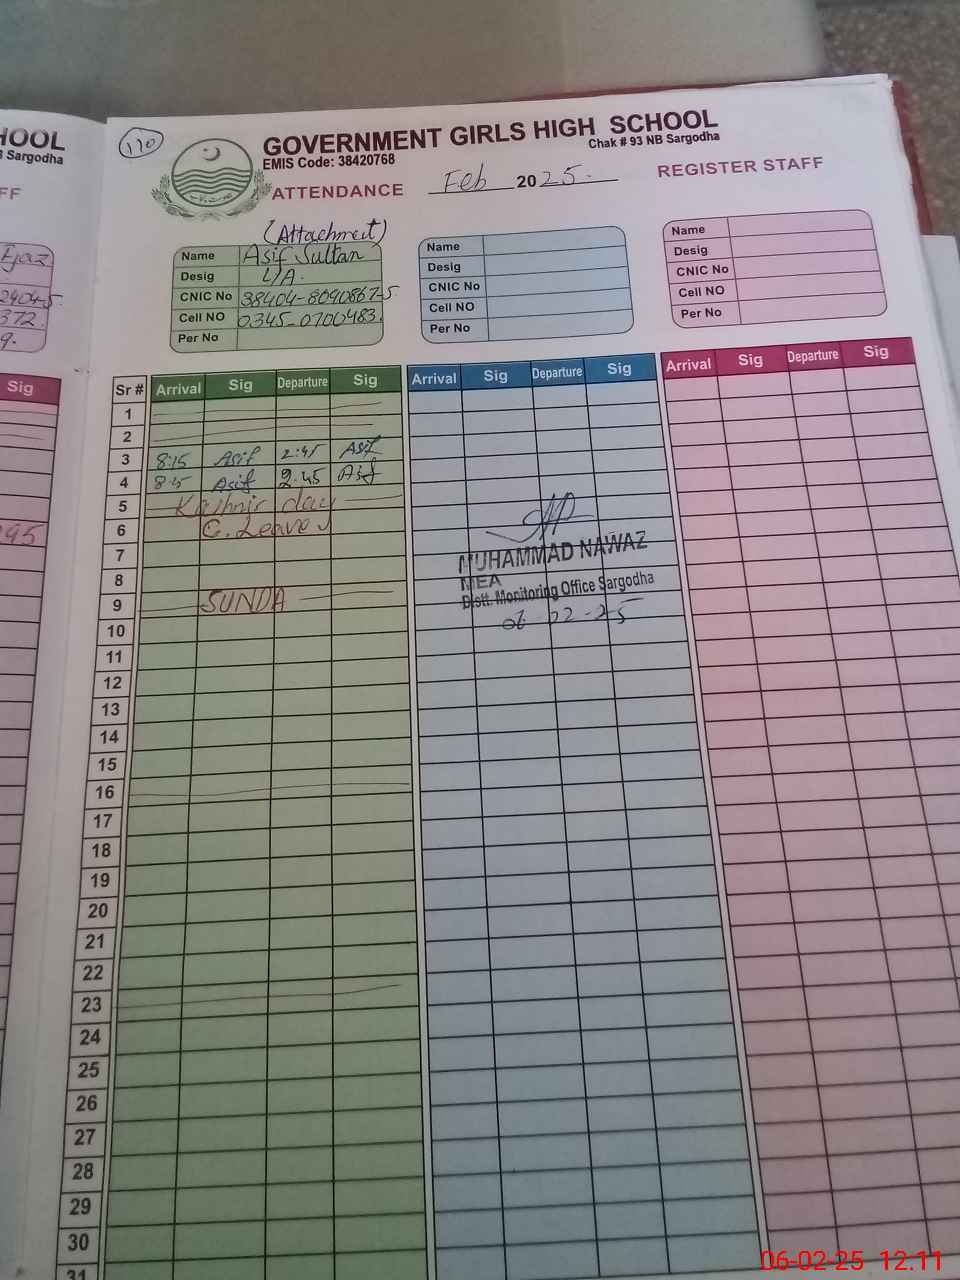 HOOL
Sargodha
FF
Ejaz
2404-5
372.
9.
Sig
95
110
GOVERNMENT GIRLS HIGH SCHOOL
EMIS Code: 38420768
Chak # 93 NB Sargodha
ATTENDANCE Feb 2025. REGISTER STAFF
(Attachment)
Name Asif Sultan
Desig L/A.
CNIC No 38404-8090867-5
Cell NO 0345-0700483.
Per No
Name
Desig
CNIC No
Cell NO
Per No
Name
Desig
CNIC No
Cell NO
Per No
Sr # Arrival Sig Departure Sig Arrival Sig Departure Sig Arrival Sig Departure Sig
1
2
3 8:15 Asif 2:45 Asif
4 Asif 2:45 Asif
5 Kashmir day
6 C. Leave
7
8
9 SUNDA
10
11
12
13
14
15
16
17
18
19
20
21
22
23
24
25
26
27
28
29
30
31
MUHAMMAD NAWAZ
MEA
Distt. Monitoring Office Sargodha
06-02-25
06-02-25 12.11